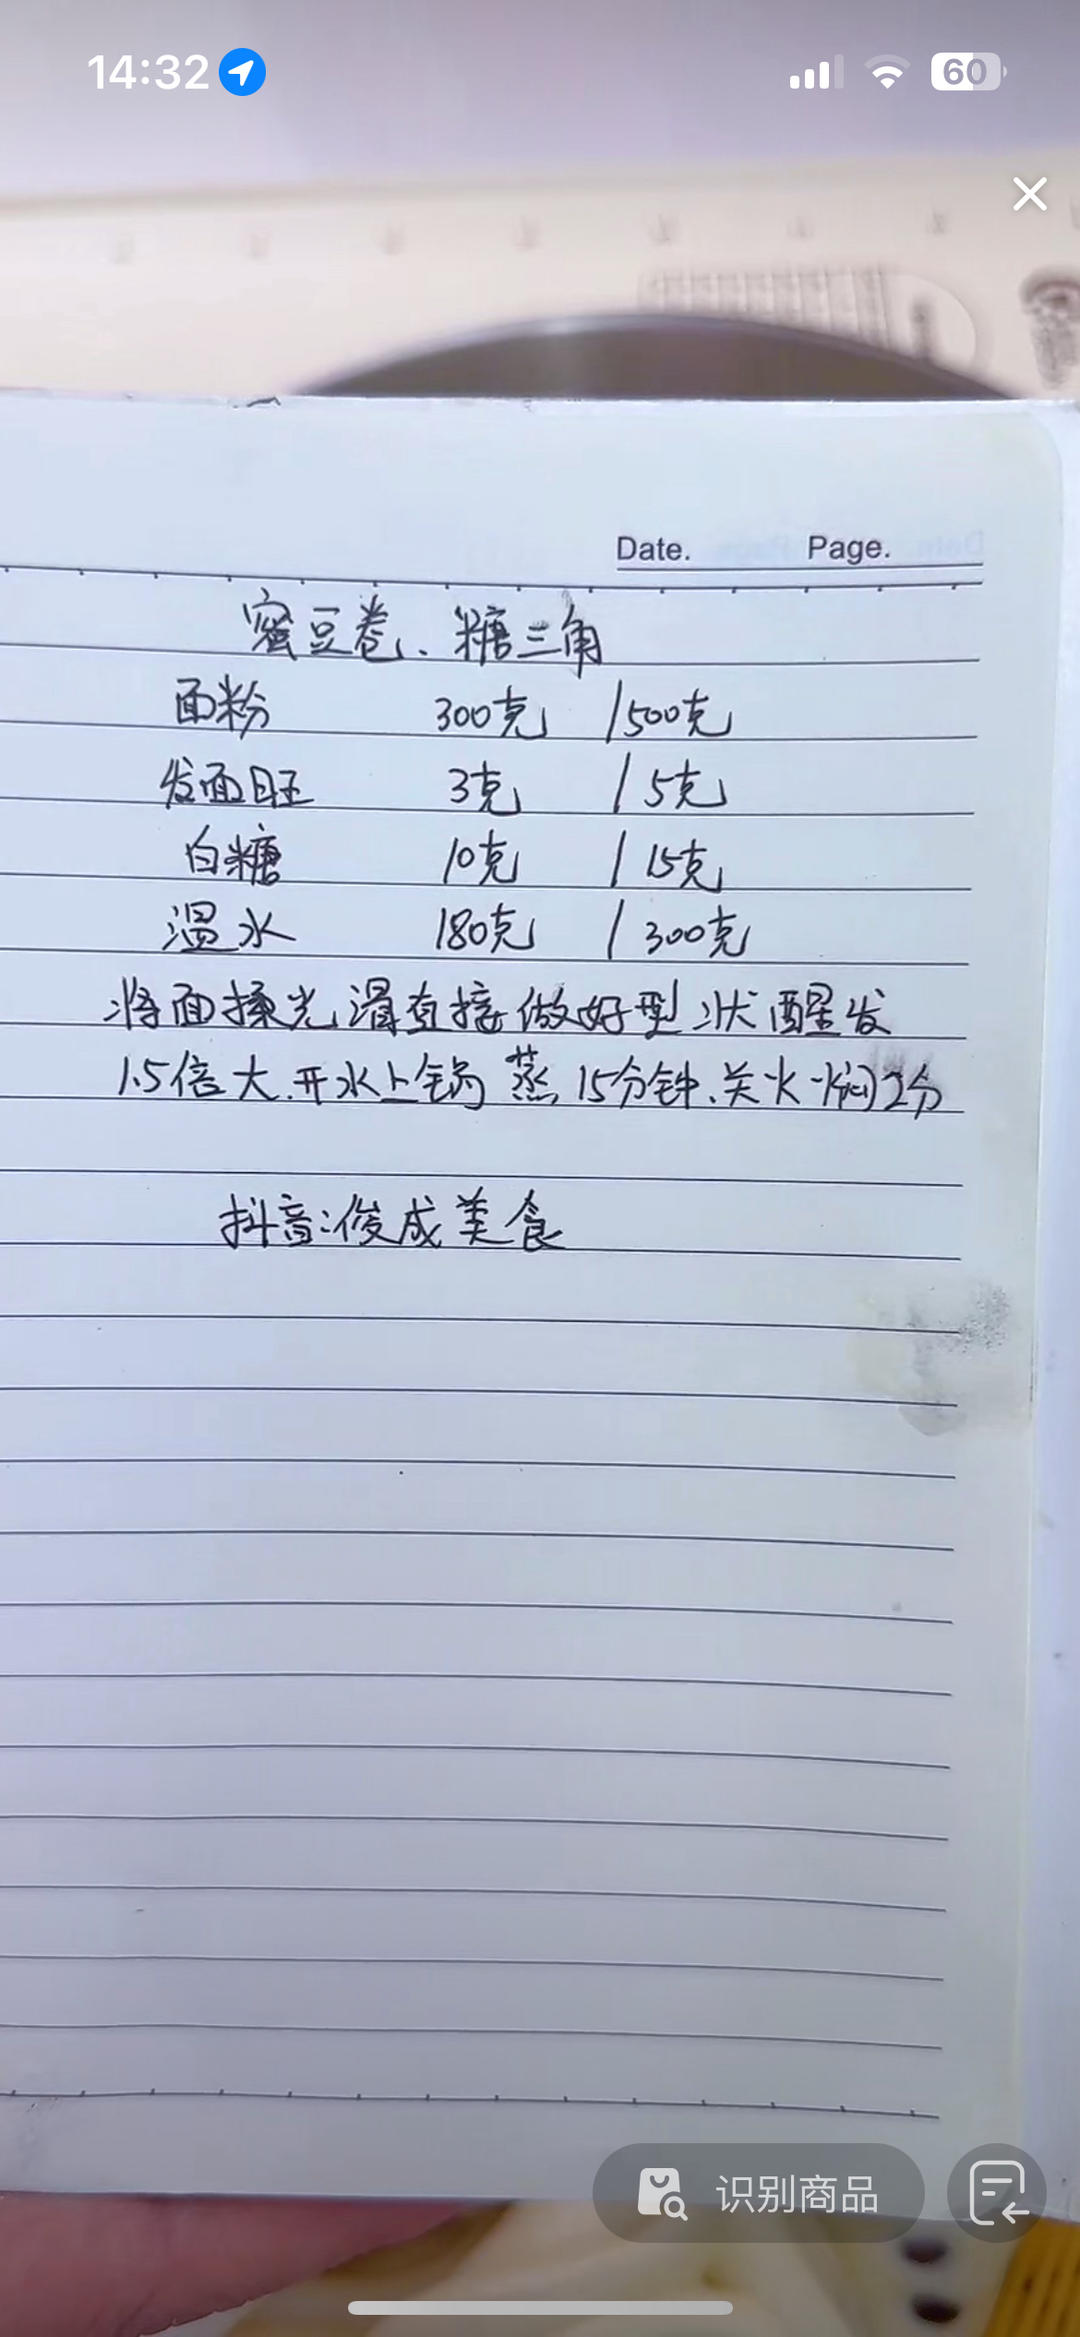 14:32
60
Date. Page.
蜜豆卷、糖三角
面粉 300克 / 500克
发面旺 3克 / 5克
白糖 10克 / 15克
温水 180克 / 300克
将面揉光滑直接做好型状醒发
1.5倍大.开水上锅蒸15分钟、关火焖2分
抖音:俊成美食
识别商品